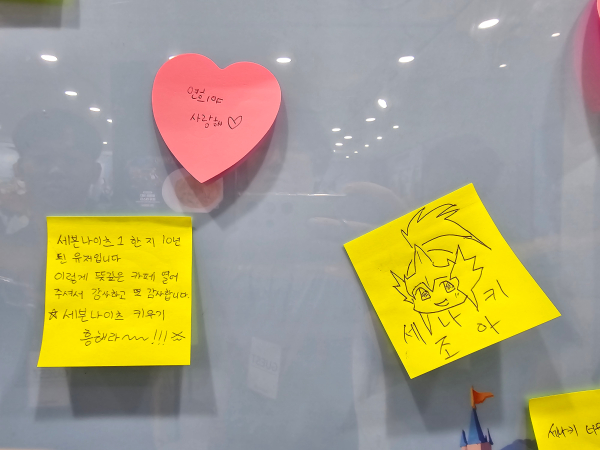 사랑해 ♡
세븐나이츠 1 한 지 10년
된 유저입니다
이렇게 뜻깊은 카페 열어
주셔서 감사하고 또 감사합니다.
☆ 세븐나이츠 키우기
흥해라~~!!! ☆
세 나 키
조 아
세나키